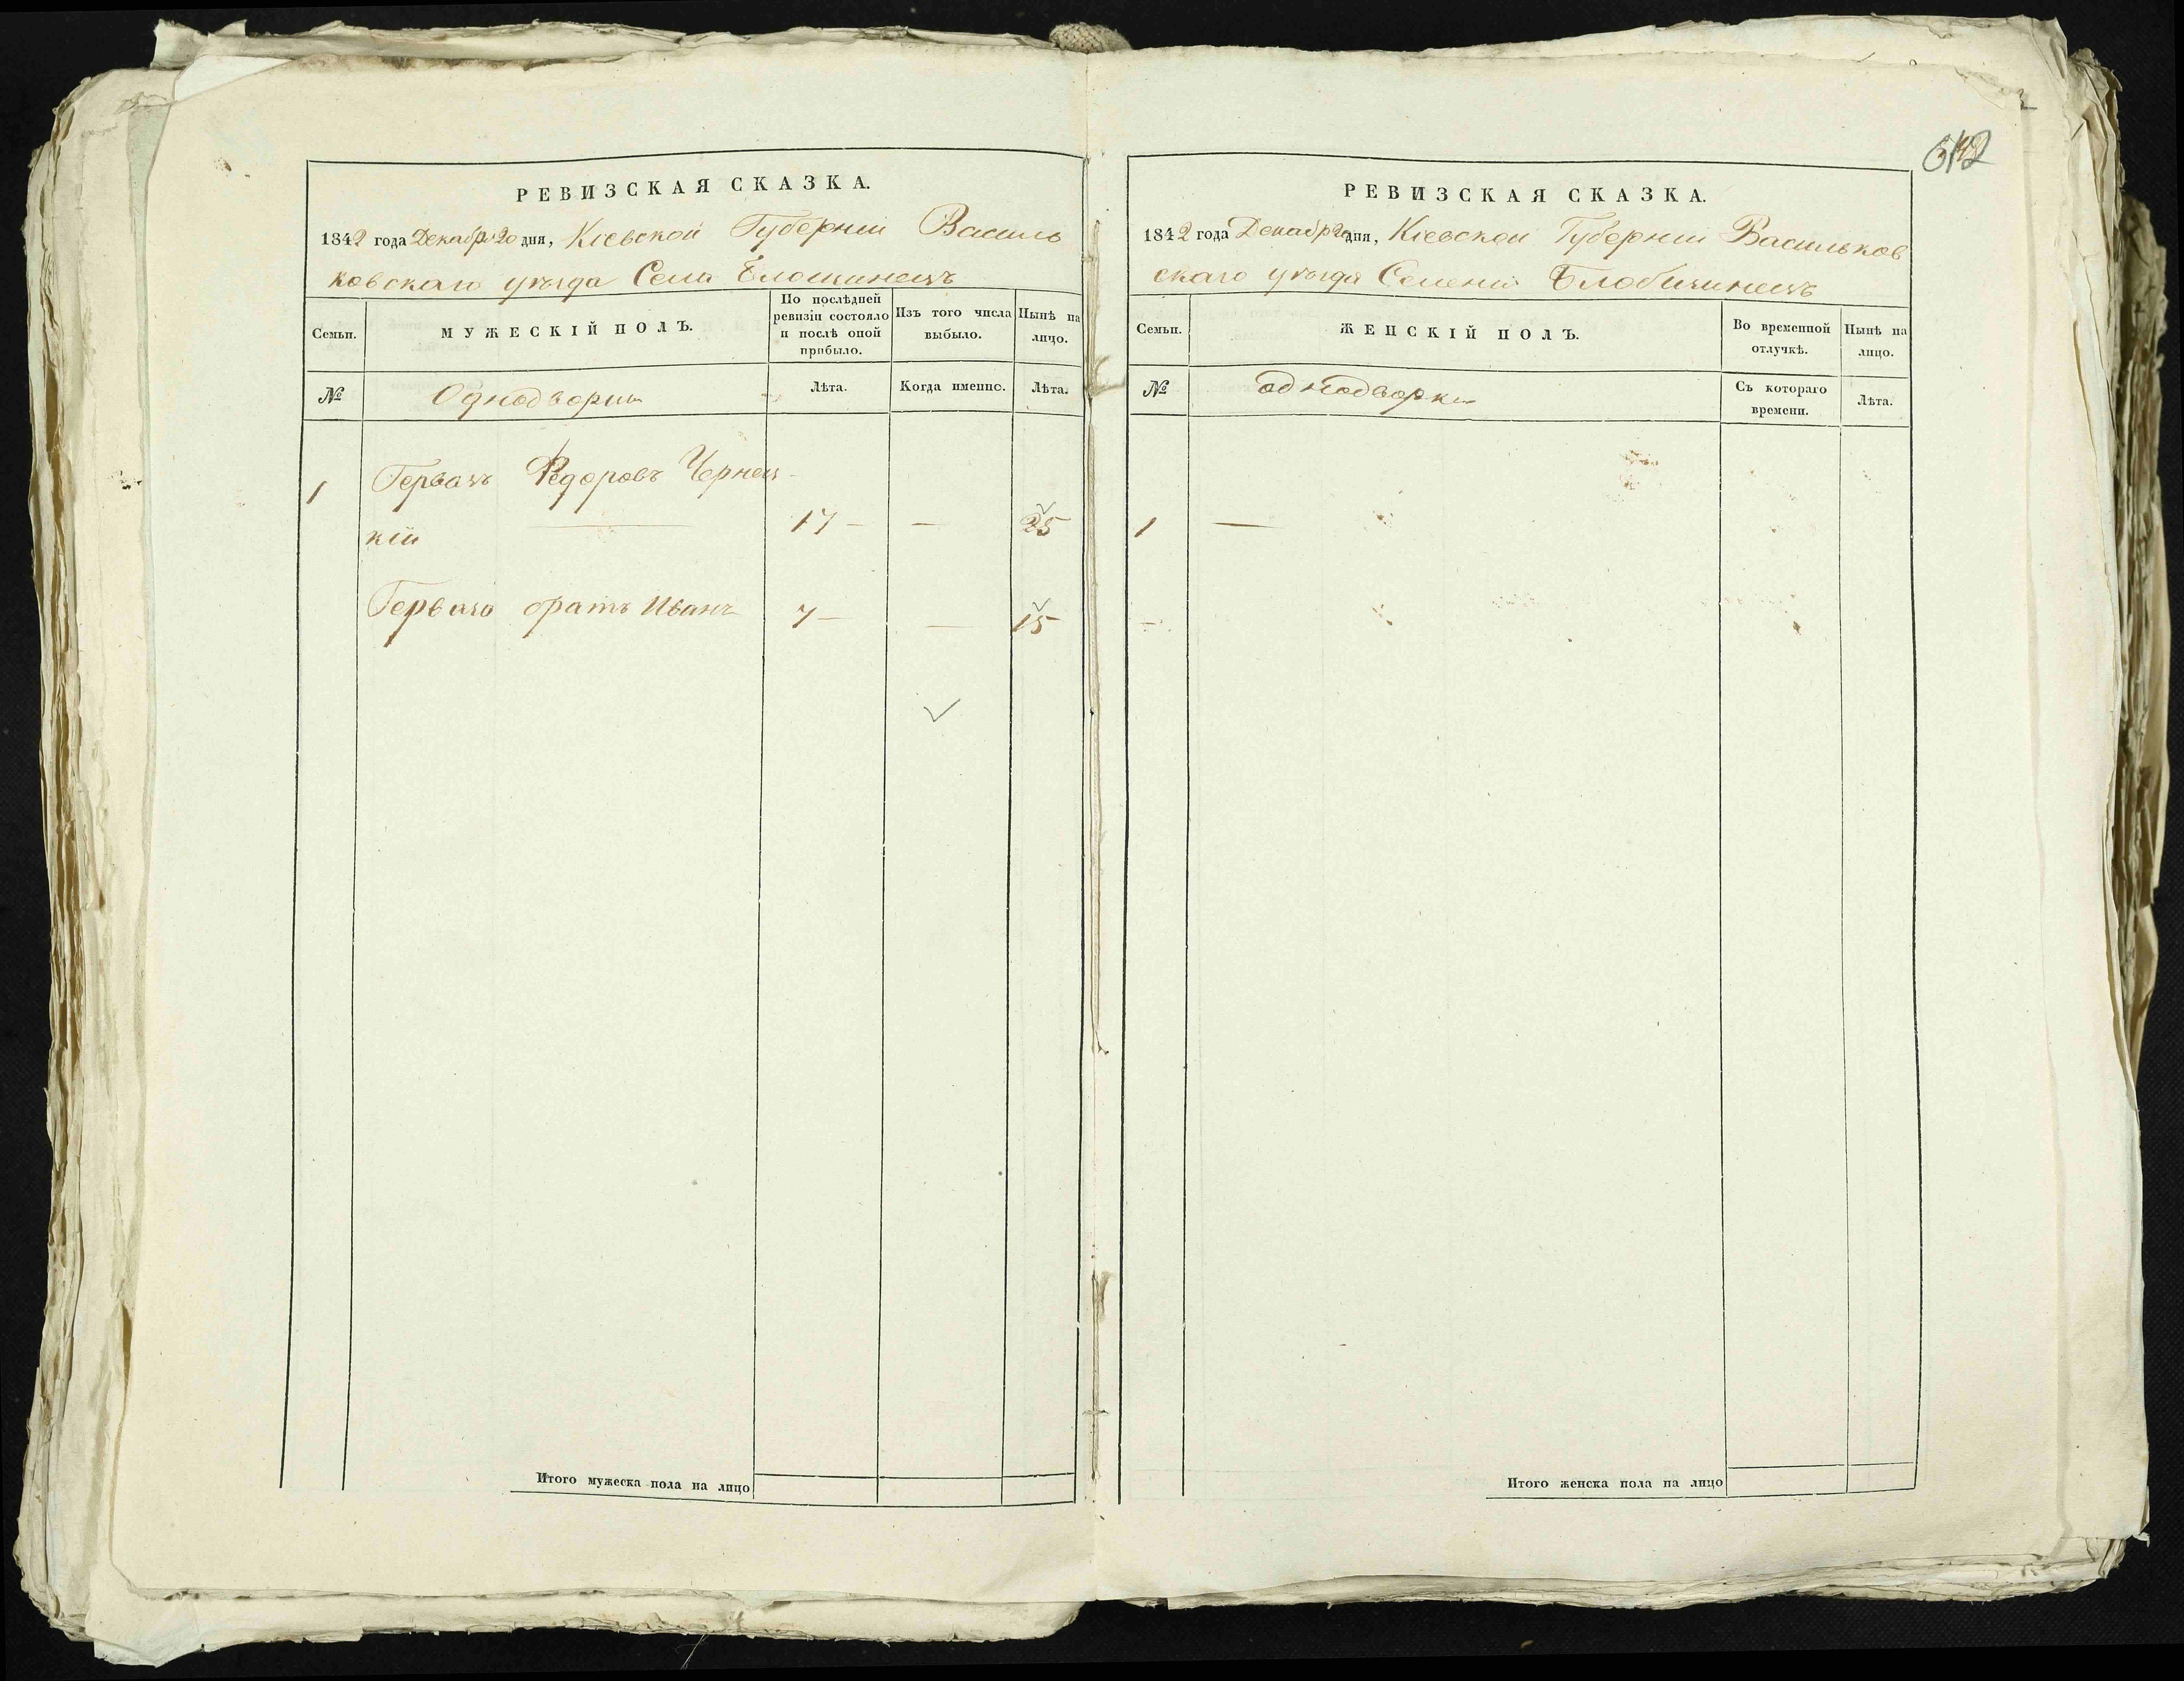 РЕВИЗСКАЯ СКАЗКА.
1842 года Декабр 20 дня, Кіевской Губерніи Василь
ковскаго уѣзда Села
Семьи.
МУЖЕСКІЙ ПОЛЪ.
По послѣдней
ревизіи состояло
и послѣ оной
прибыло.
Изъ того числа
выбыло.
Нынѣ на
лицо.
№
Однодворцы
Лѣта.
Когда именно.
Лѣта.
1
Федоровъ Чернец-
кій
17 — — 25
братъ Иванъ 7 — — 15
Итого мужеска пола на лицо
642
РЕВИЗСКАЯ СКАЗКА.
1842 года Декабр 20 дня, Кіевской Губерніи Васильков
скаго уѣзда
Семьи.
ЖЕНСКІЙ ПОЛЪ.
Во временной
отлучкѣ.
Нынѣ на
лицо.
№
однодворки
Съ котораго
времени.
Лѣта.
1 —
Итого женска пола на лицо